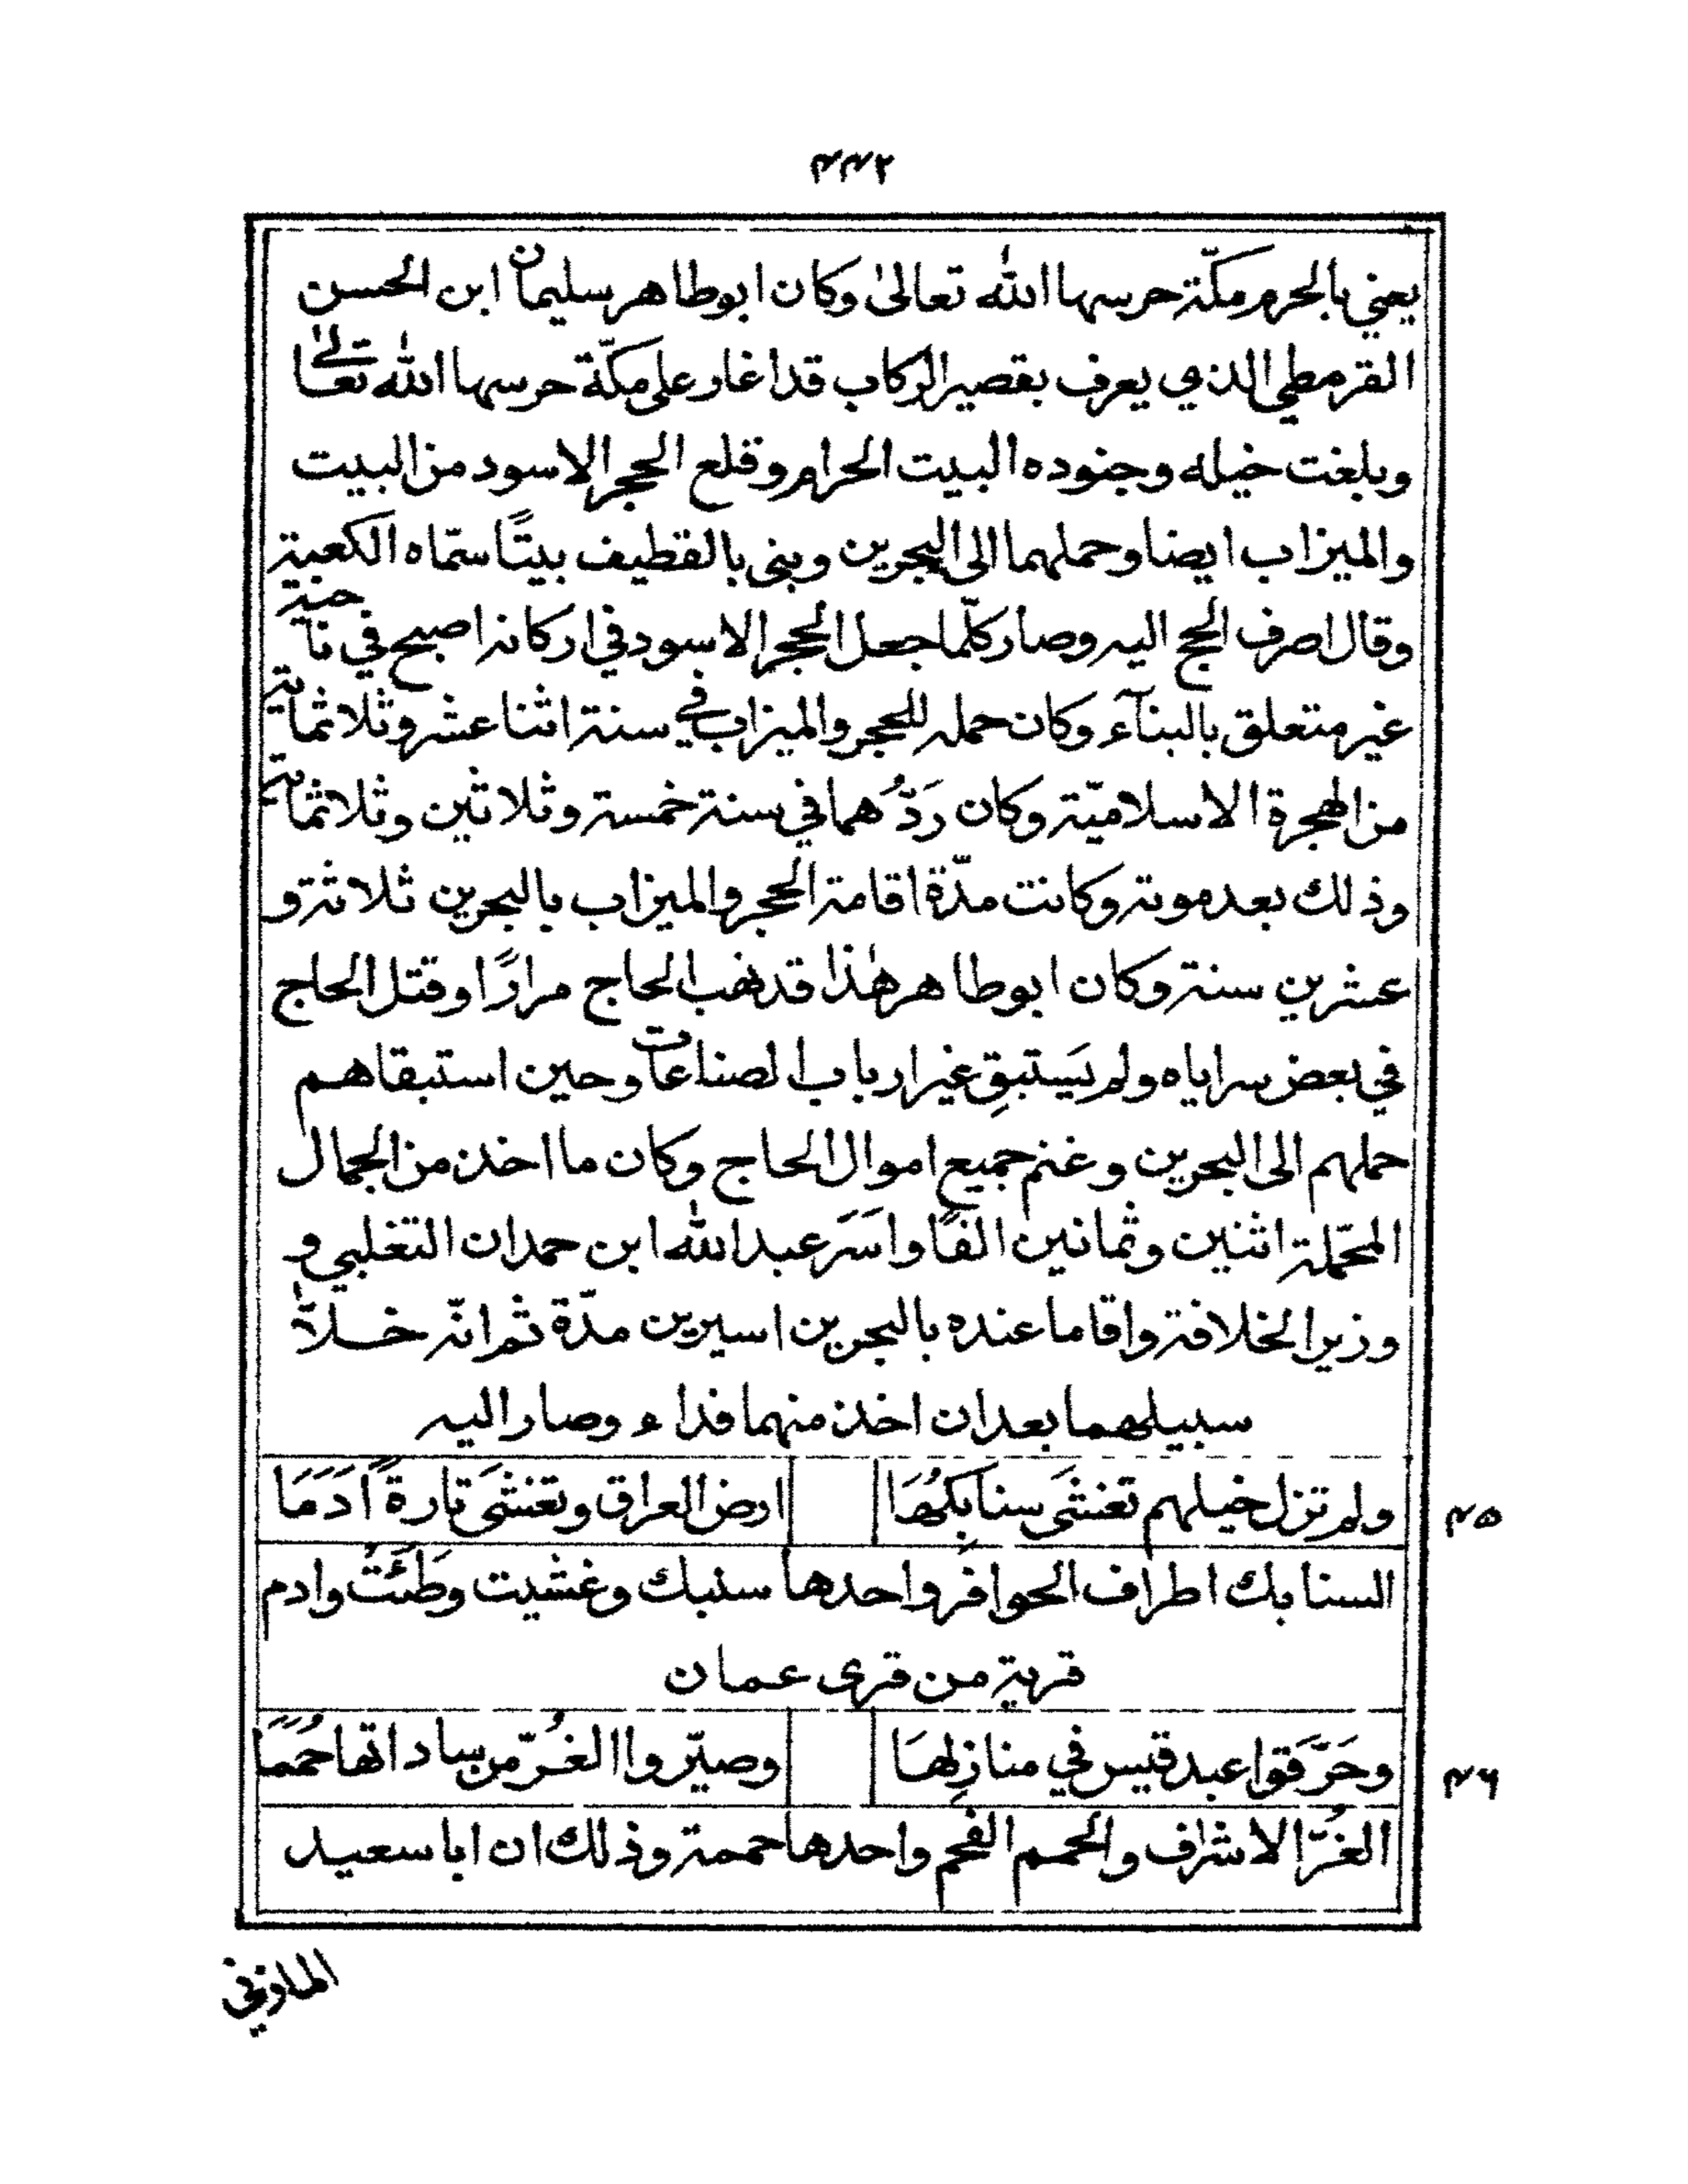 ٤٤٢
يعني بالحرم مكّة حرسها الله تعالى وكان ابوطاهر سليمان ابن الحسن
القرمطي الذي يعرف بقصير الركاب قد اغار على مكّة حرسها الله تعالى
وبلغت خيله وجنوده البيت الحرام وقلع الحجر الاسود من البيت
والميزاب ايضا وحملهما الى البحرين وبنى بالقطيف بيتًا سمّاه الكعبة
وقال اصرف الحج اليه وصار كلّما جعل الحجر الاسود في اركانه اصبح في ناحية
غير متعلق بالبنآء وكان حمله للحجر والميزاب في سنة اثنا عشر وثلاثماية
من الهجرة الاسلاميّة وكان رَدُّهما في سنة خمسة وثلاثين وثلاثماية
وذلك بعد موته وكانت مدّة اقامة الحجر والميزاب بالبحرين ثلاثة و
عشرين سنة وكان ابوطاهر هٰذا قد نهب الحاج مرارًا وقتل الحاج
في بعض سراياه ولم يَستبقِ غير ارباب الصناعات وحين استبقاهم
حملهم الى البحرين وغنم جميع اموال الحاج وكان ما اخذ من الجمال
المحمّلة اثنين وثمانين الفًا واَسَرَ عبد الله ابن حمدان التغلبي و
وزير الخلافة واقاما عنده بالبحرين اسيرين مدّة ثم انّه خلاّ
سبيلهما بعد ان اخذ منهما فداء وصار اليه
ولم تزل خيلهم تغشَى سنابِكُهَا ارض العراق وتغشَى تارةً اَدَمَا
٤٥
السنابك اطراف الحوافر واحدها سنبك وغشيت وَطَئَتْ وادم
قرية من قرى عمان
وحَرَّقوا عبد قيس في منازلِهَا وصيّروا الغُرّ من ساداتها حُمَمًا
٤٦
الغُرّ الاشراف والحمم الفحم واحدها حممة وذلك ان ابا سعيد